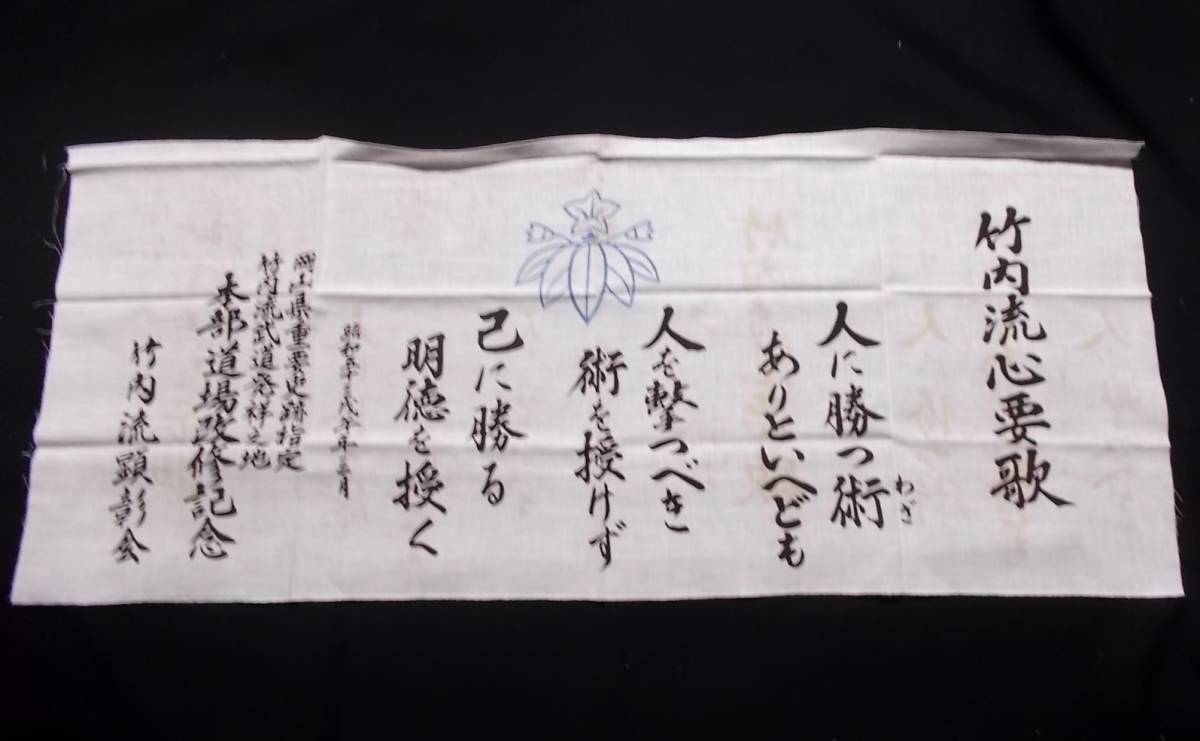 竹内流心要歌
人に勝つ術
わざ
ありといへども
人を撃つべき
術を授けず
己に勝る
明徳を授く
昭和五十 年三月
岡山県重要史跡指定
竹内流武道発祥之地
本部道場改修記念
竹内流顕彰会